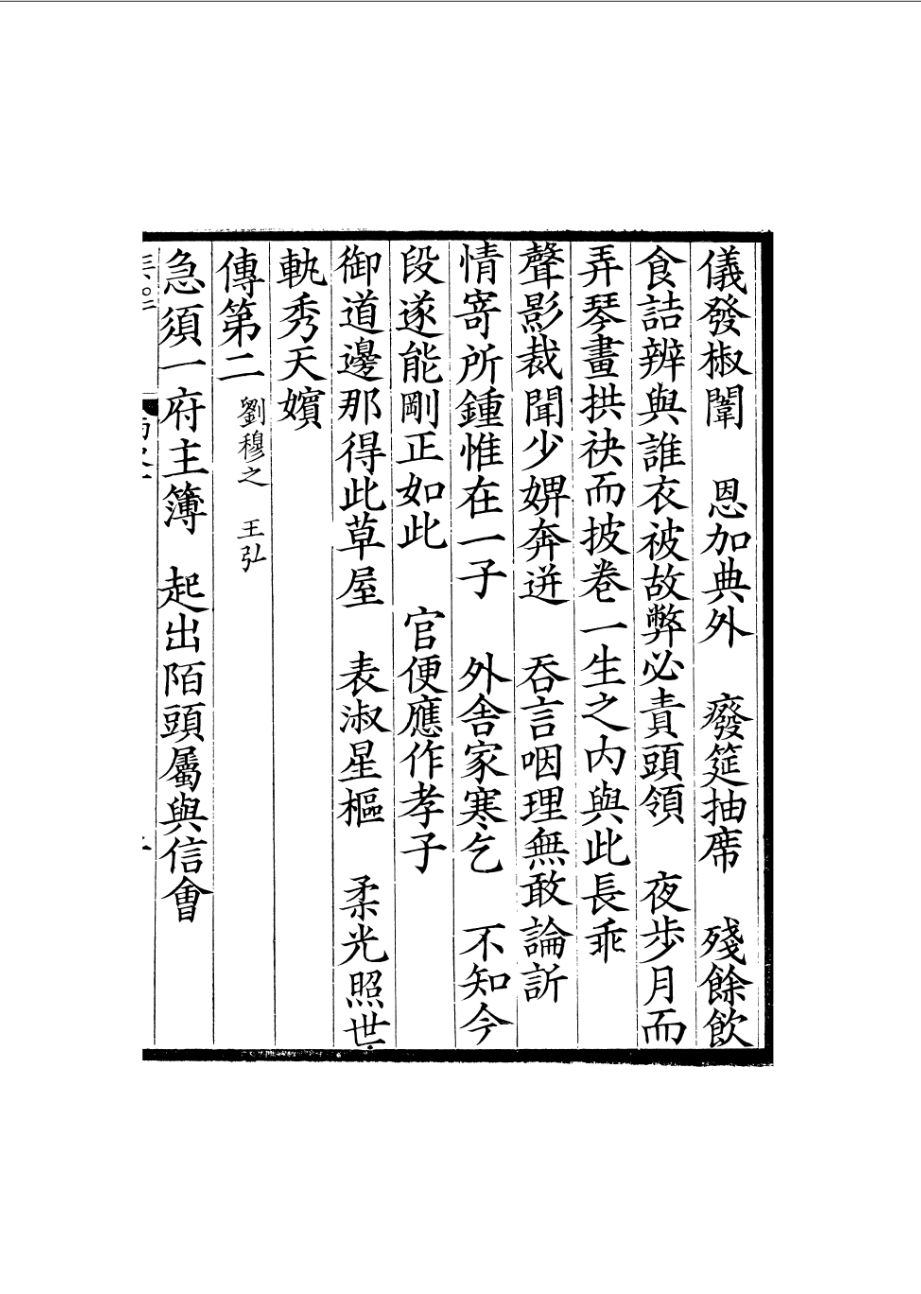 儀發椒闈　恩加典外　癈筵抽席　殘餘飲
食詰辨與誰衣被故弊必責頭領　夜步月而
弄琴晝拱袂而披卷一生之内與此長乖
聲影裁聞少婢奔迸　吞言咽理無敢論訢
情寄所鍾惟在一子　外舍家寒乞　不知今
段遂能剛正如此　官便應作孝子
御道邊那得此草屋　表淑星樞　柔光照世
軌秀天嬪
傳第二 劉穆之　王弘
急須一府主簿　起出陌頭屬與信會